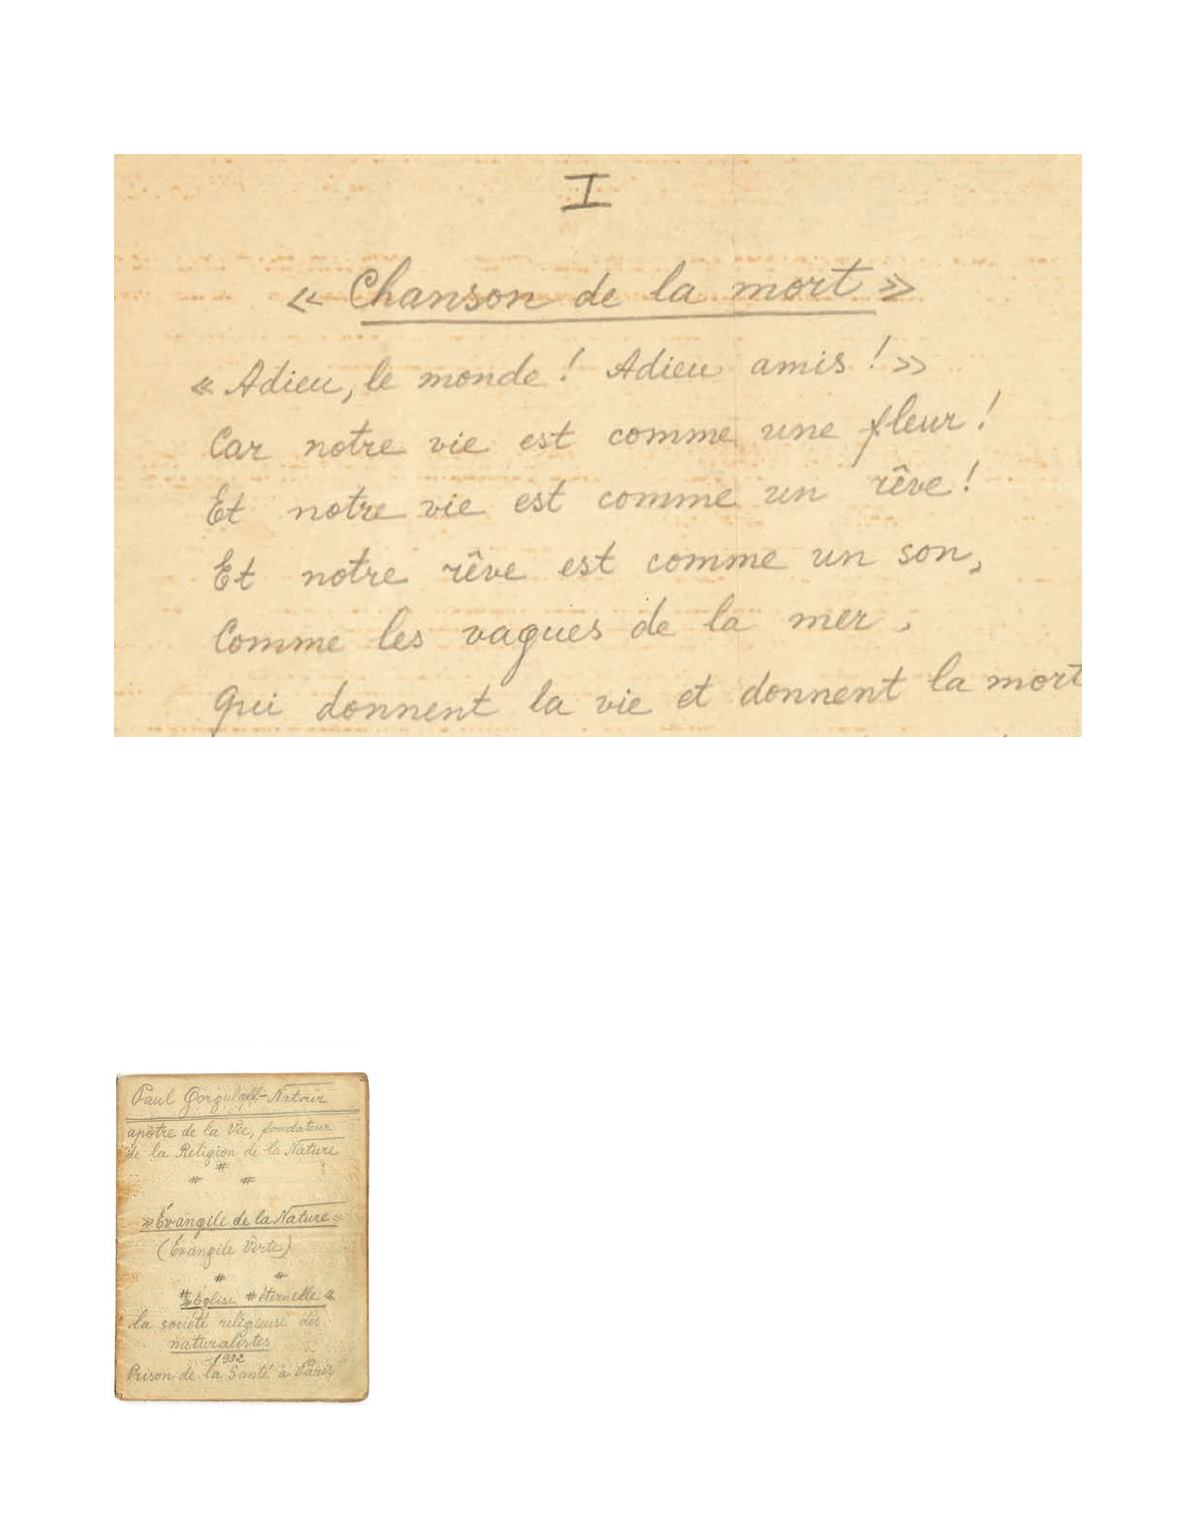 I
« Chanson de la mort »
« Adieu, le monde ! Adieu amis ! »
Car notre vie est comme une fleur !
Et notre vie est comme un rêve !
Et notre rêve est comme un son,
Comme les vagues de la mer,
Qui donnent la vie et donnent la mort
Paul Gorguloff-Natour
apôtre de la Vie, fondateur
de la Religion de la Nature
#
# #
» Évangile de la Nature «
(Évangile Verte)
# #
# » Église # éternelle «
la société religieuse des
naturalistes
1932
Prison de la Santé à Paris